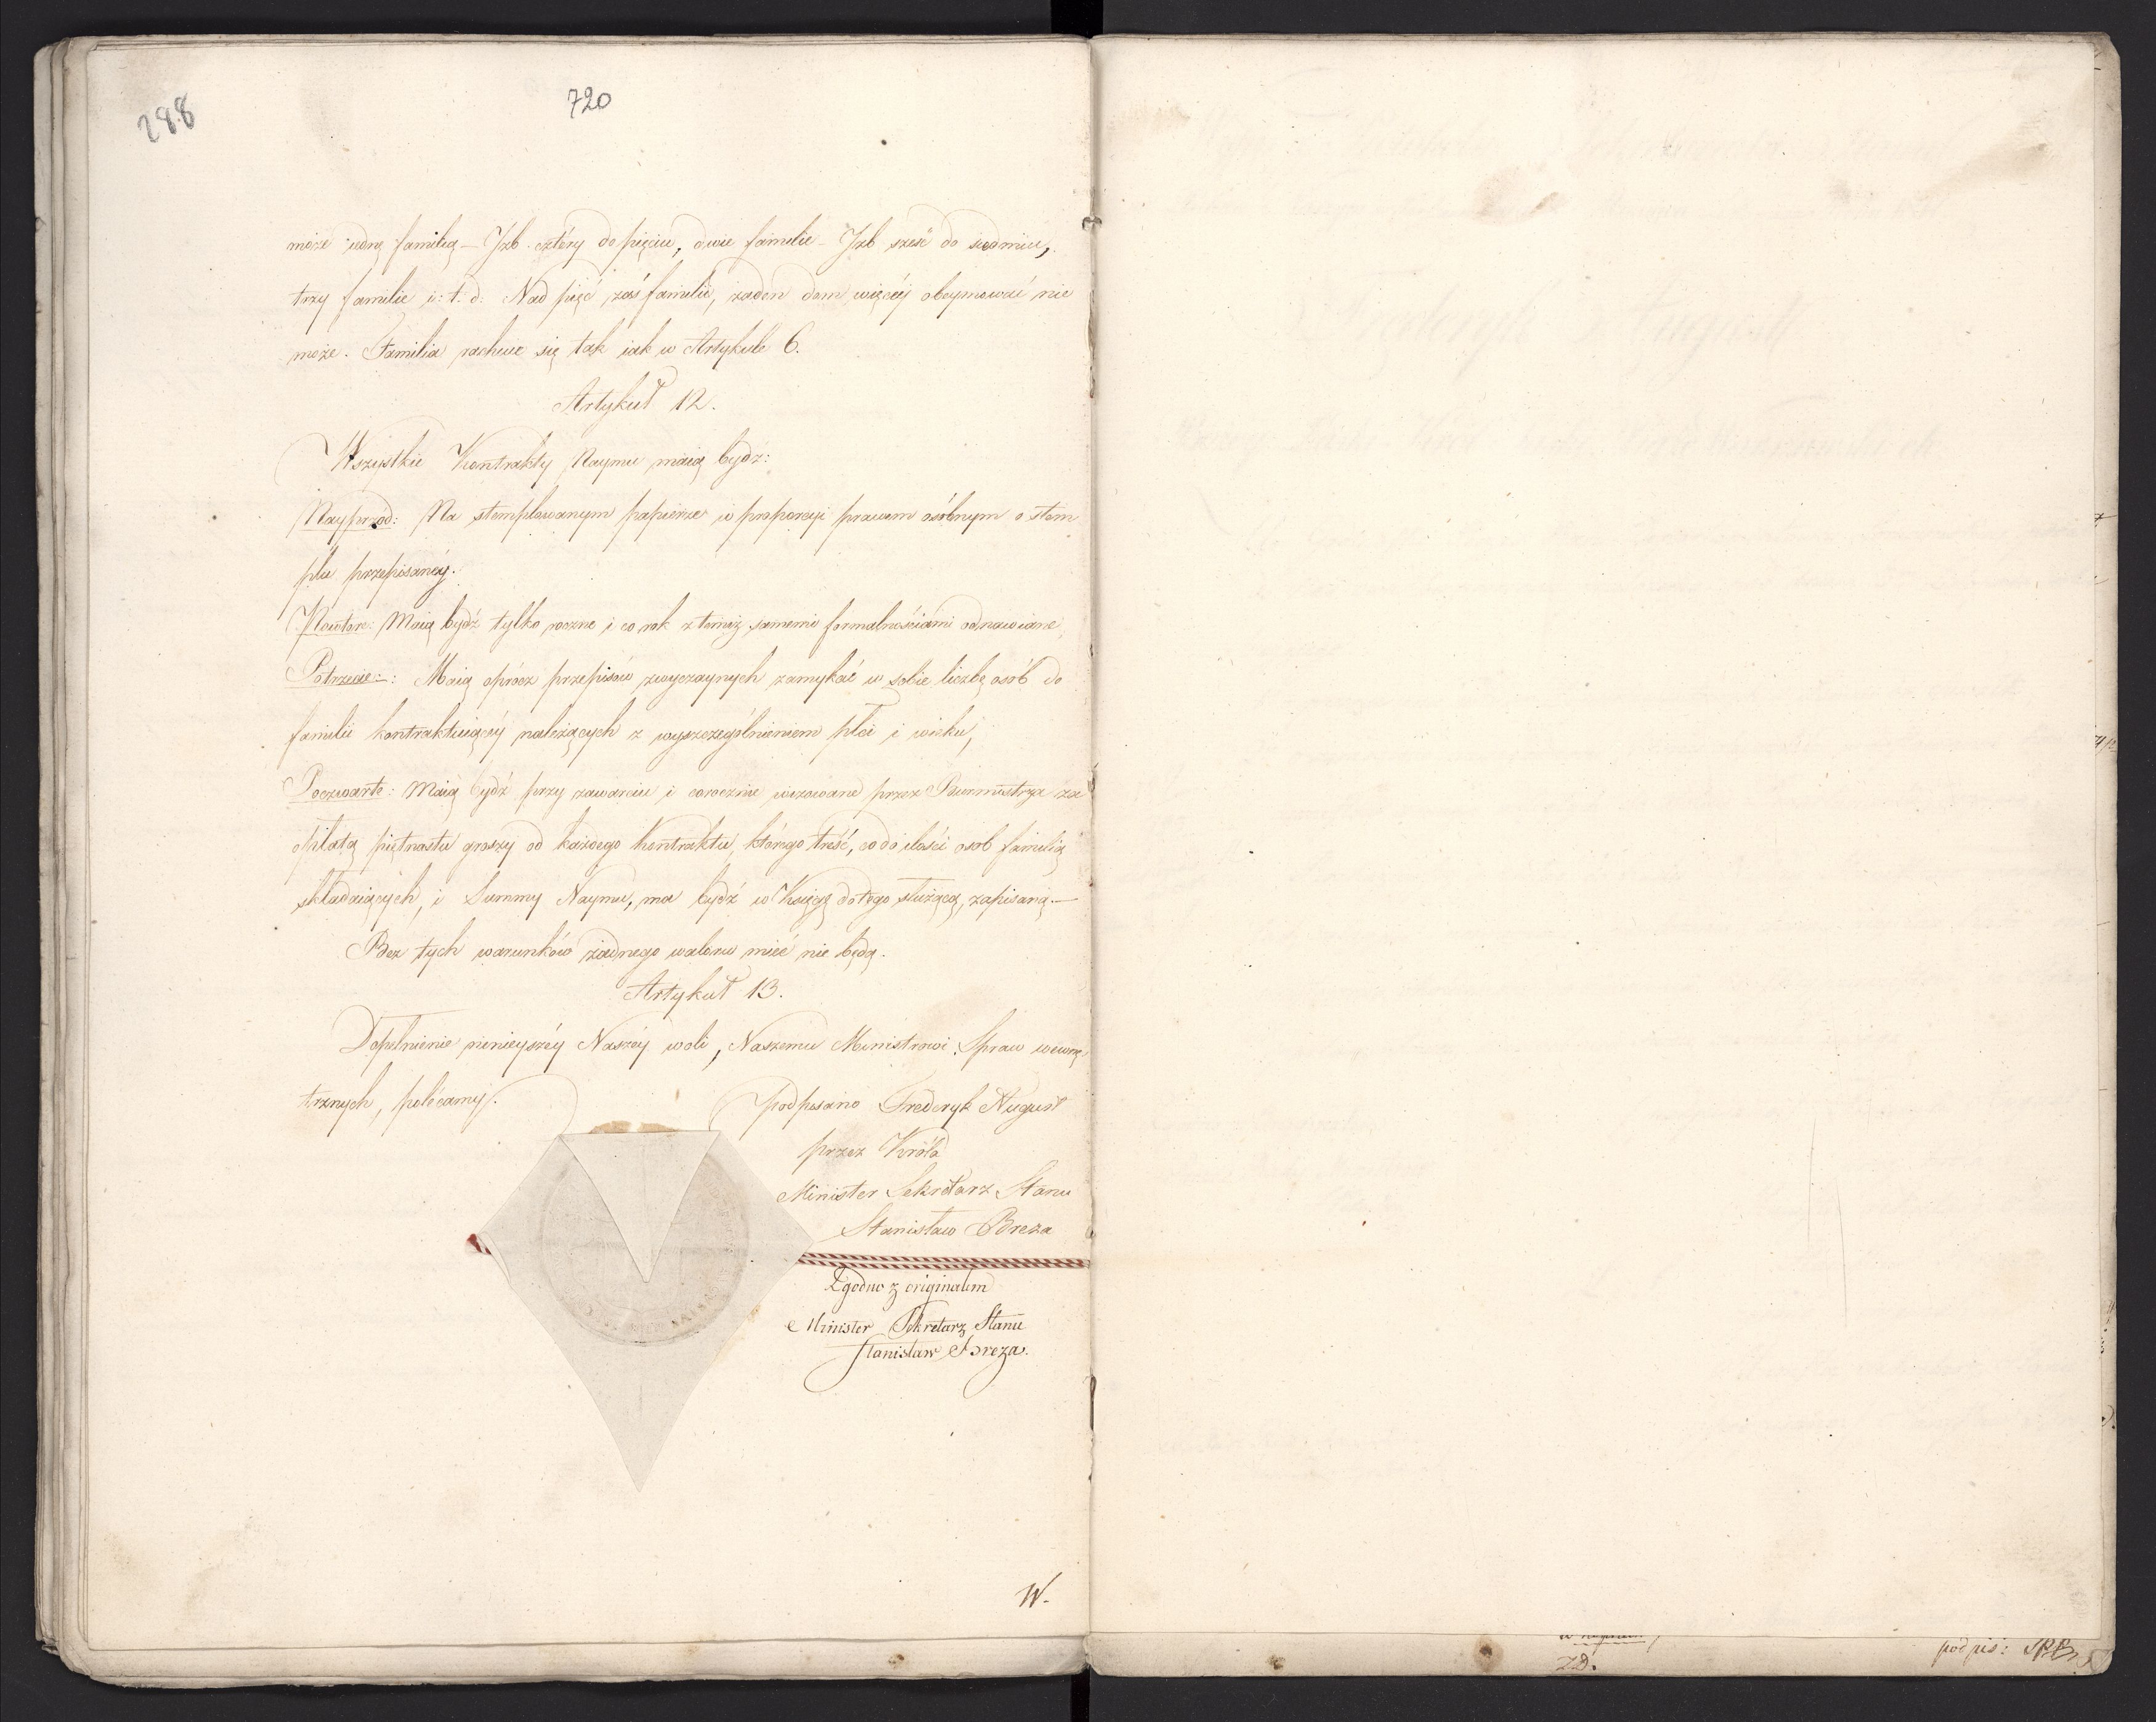 288
720
może iedną familią — Jzb cztéry do pięciu, dwie familie — Jzb sześć do siedmiu,
trzy familie i: t: d: Nad pięć zaś familii, żaden dom więcéy obeymować nie
może. Familia rachuie się tak iak w Artykule 6.
Artykuł 12.
Wszystkie Kontrakty Naymu maią bydź:
Nayprzod: Na stemplowanym papierze w proporcyi prawem osóbnym o stem
plu przepisanéy.
Powtore: Maią bydź tylko roczne i co rok z temiż samemi formalnościami odnawiane,
Potrzecie: Maią oprócz przepisów zwyczaynych zamykać w sobie liczbę osób do
familii kontraktuiącéy należących z wyszczególnieniem płci i wieku,
Poczwarte: Maią bydź przy zawarciu i corocznie wizowane przez Burmistrza za
opłatą piętnastu groszy od każdego Kontraktu, którego treść, co do ilości osob familią
składaiących, i Summy Naymu, ma bydź w Księgę do tego służącą, zapisaną —
Bez tych warunków żadnego waloru mieć nie będą.
Artykuł 13.
Dopełnienie ninieyszéy Naszéy woli, Naszemu Ministrowi Spraw wewnę
trznych, polécamy.
podpisano Frederyk August
przez Króla
Minister Sekretarz Stanu
Stanisław Breza
Zgodno z originałem
Minister Sekretarz Stanu
Stanisław Breza.
W.
ZD.
podpis: